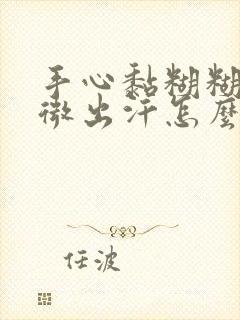 手心黏糊糊
微出汗怎麼
任波